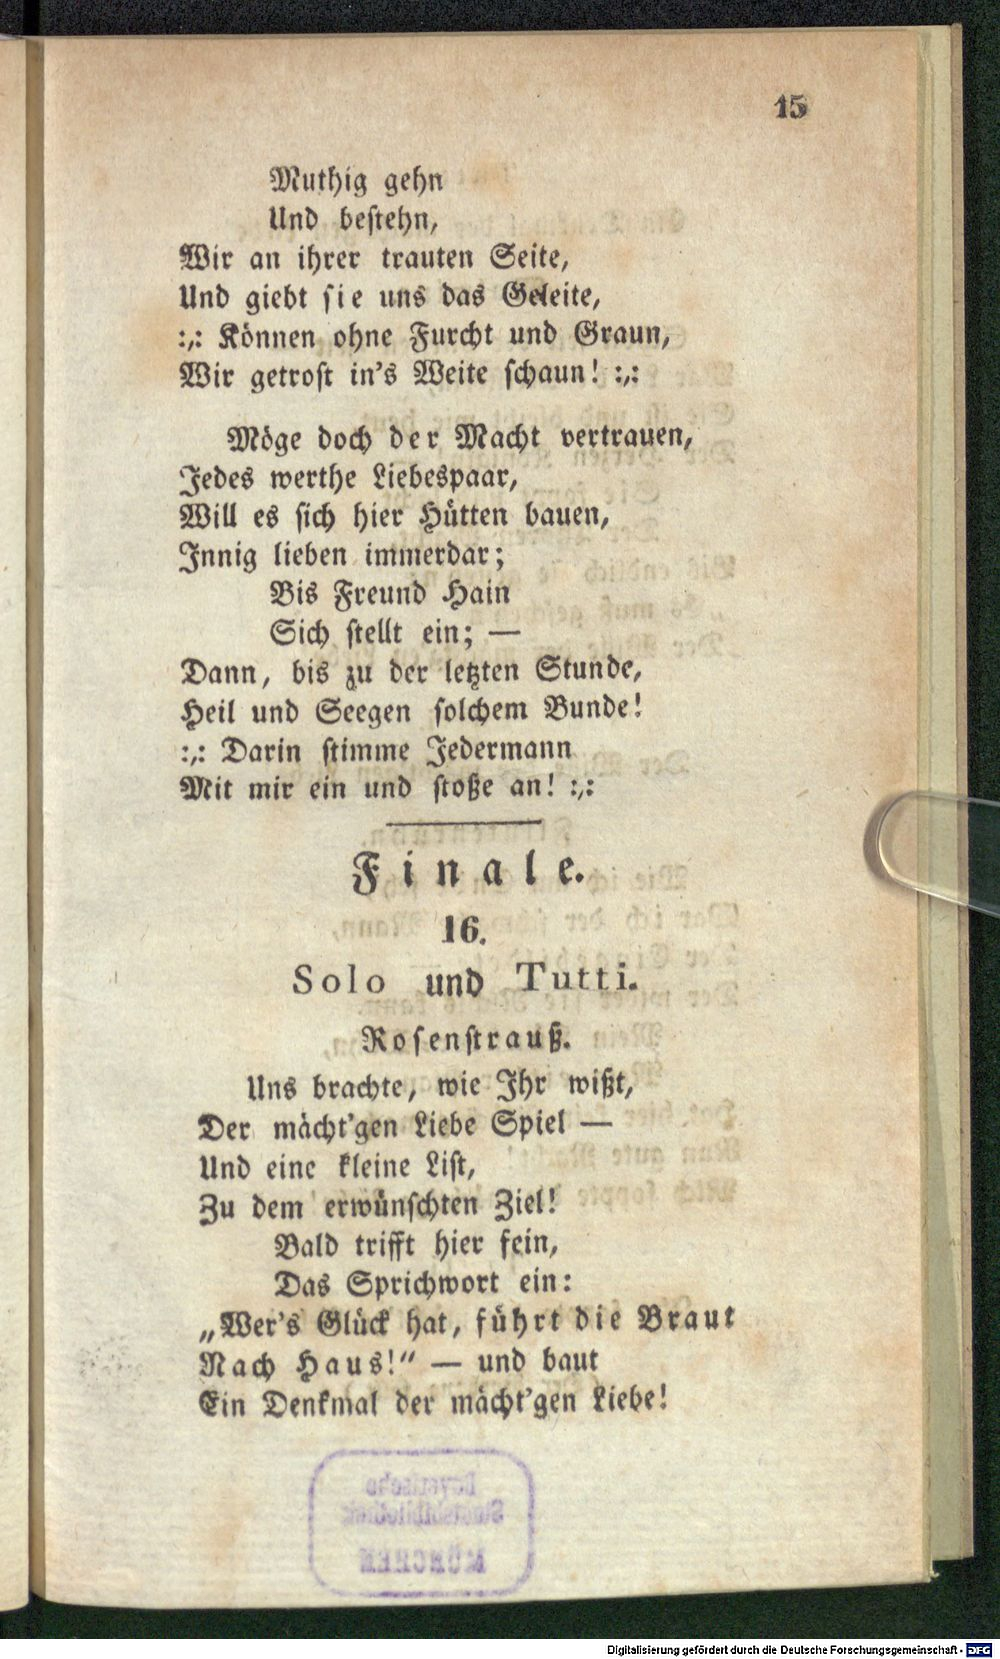 15
Muthig gehn
Und bestehn,
Wir an ihrer trauten Seite,
Und giebt sie uns das Geleite,
:,: Können ohne Furcht und Graun,
Wir getrost in's Weite schaun! :,:
Möge doch der Macht vertrauen,
Jedes werthe Liebespaar,
Will es sich hier Hütten bauen,
Innig lieben immerdar;
Bis Freund Hain
Sich stellt ein; —
Dann, bis zu der letzten Stunde,
Heil und Seegen solchem Bunde!
:,: Darin stimme Jedermann
Mit mir ein und stoße an! :,:
Finale.
16.
Solo und Tutti.
Rosenstrauß.
Uns brachte, wie Ihr wißt,
Der mächt'gen Liebe Spiel —
Und eine kleine List,
Zu dem erwünschten Ziel!
Bald trifft hier fein,
Das Sprichwort ein:
„Wer's Glück hat, führt die Braut
Nach Haus!“ — und baut
Ein Denkmal der mächt'gen Liebe!
Bayerische
Staatsbibliothek
MÜNCHEN
Digitalisierung gefördert durch die Deutsche Forschungsgemeinschaft - DFG